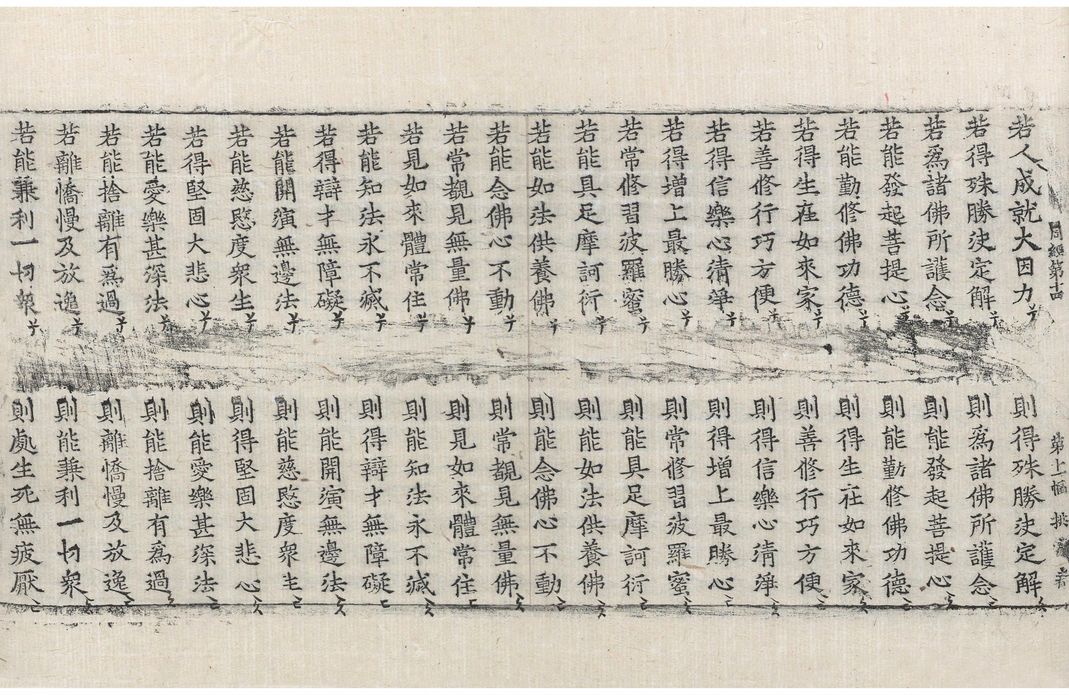 周經第十四
若人成就大因力 則得殊勝决定解
若得殊勝决定解 則爲諸佛所護念
若爲諸佛所護念 則能發起菩提心
若能發起菩提心 則能勤修佛功德
若能勤修佛功德 則得生在如來家
若得生在如來家 則善修行巧方便
若善修行巧方便 則得信樂心清淨
若得信樂心清淨 則得增上最勝心
若得增上最勝心 則常修習波羅蜜
若常修習波羅蜜 則能具足摩訶衍
若能具足摩訶衍 則能如法供養佛
若能如法供養佛 則能念佛心不動
若能念佛心不動 則常覩見無量佛
若常覩見無量佛 則見如來體常住
若見如來體常住 則能知法永不滅
若能知法永不滅 則得辯才無障礙
若得辯才無障礙 則能開演無邊法
若能開演無邊法 則能慈愍度衆生
若能慈愍度衆生 則得堅固大悲心
若得堅固大悲心 則能愛樂甚深法
若能愛樂甚深法 則能捨離有爲過
若能捨離有爲過 則離憍慢及放逸
若離憍慢及放逸 則能兼利一切衆
若能兼利一切衆 則處生死無疲厭